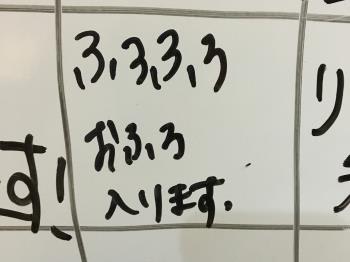 ふふふろ
おふろ
入ります.
す!
り